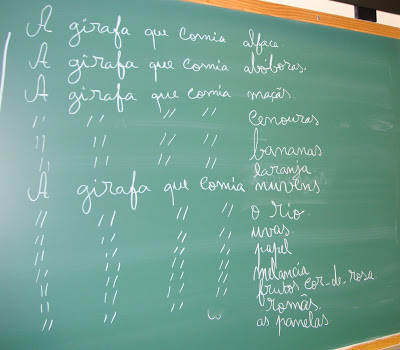 A girafa que comia alface.
A girafa que comia abóboras.
A girafa que comia maçãs.
" " " " cenouras
" " " " bananas
" " " " laranja
A girafa que comia nuvens
" " " " o rio.
" " " " uvas.
" " " " papel
" " " " melancia
" " " " frutos cor-de-rosa
" " " " romãs.
" " " " as panelas